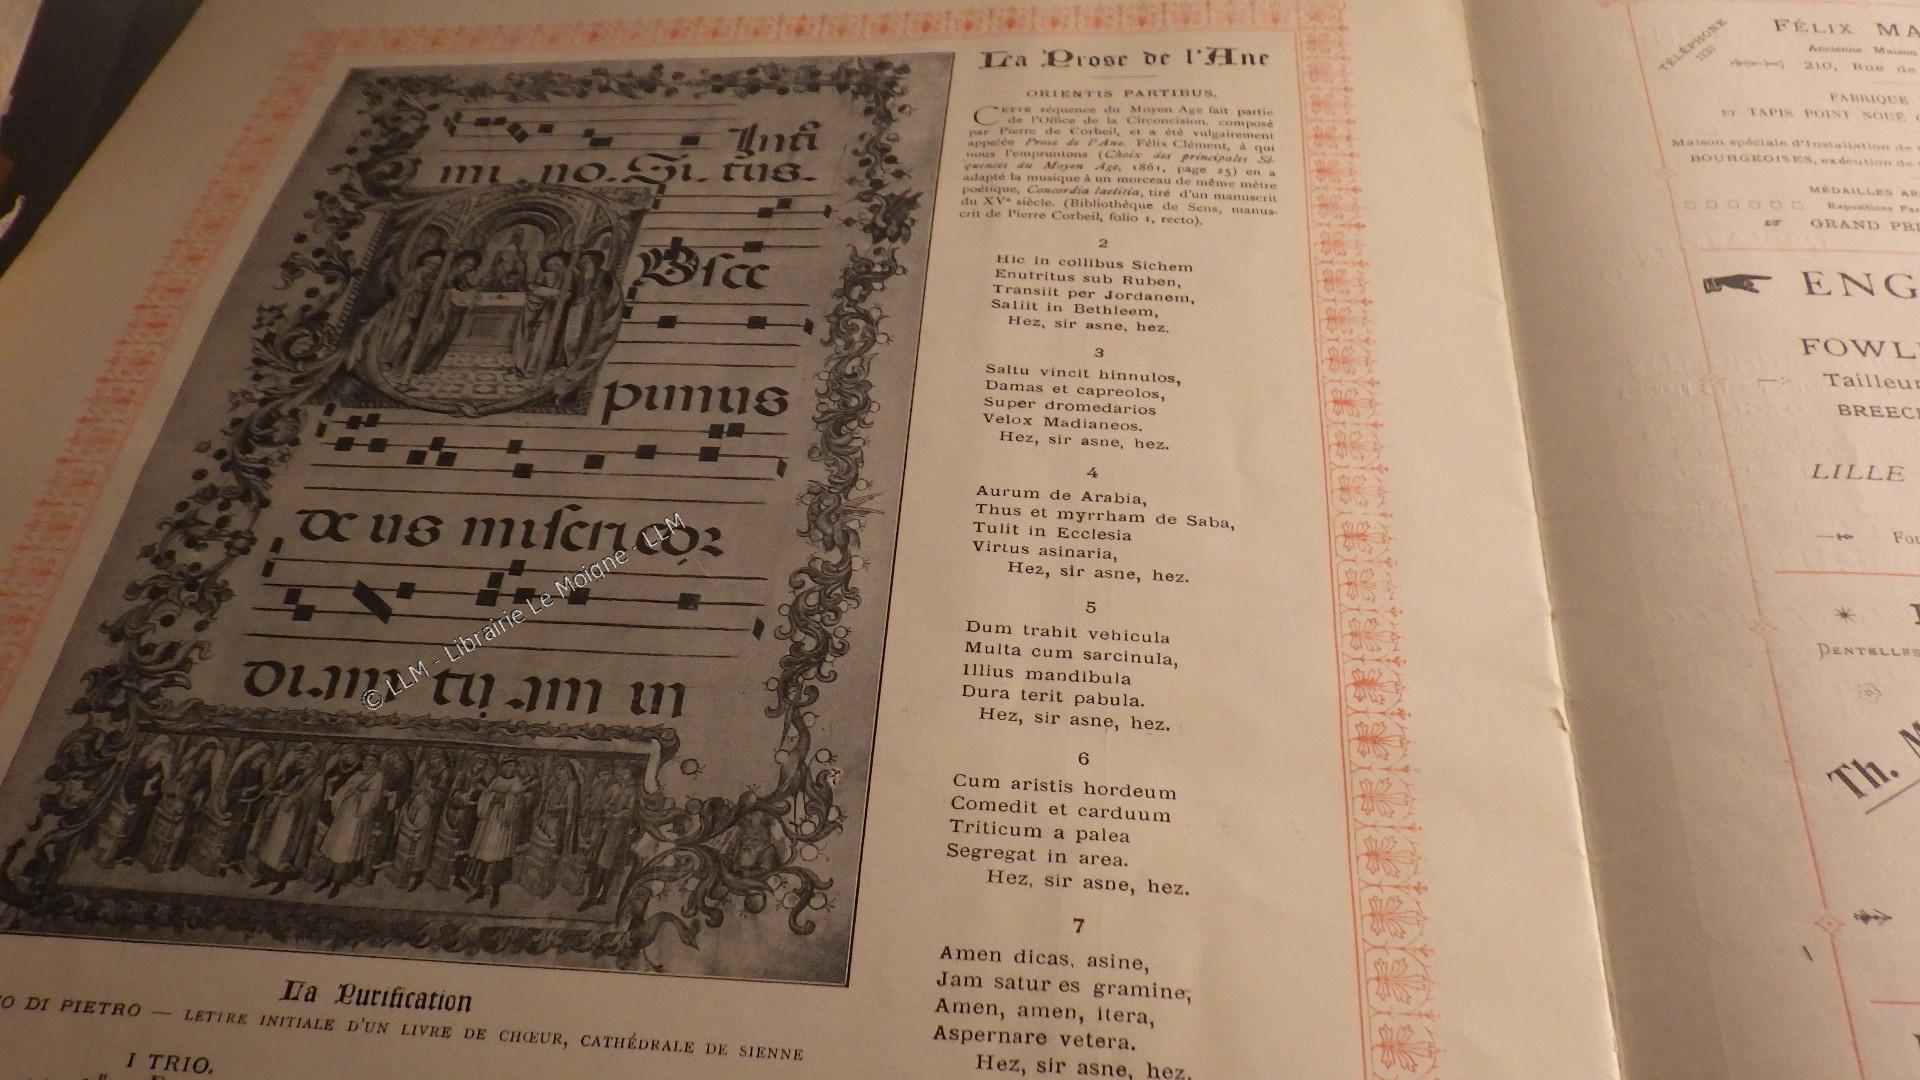 Inti
mi no. Si. cus.
Susce
pimus
deus misericor
diam tuam in
© LLM - Librairie Le Moigne - LLM
La Purification
O DI PIETRO — LETTRE INITIALE D'UN LIVRE DE CHŒUR, CATHÉDRALE DE SIENNE
I TRIO.
La Prose de l'Ane
ORIENTIS PARTIBUS.
CETTE séquence du Moyen Age fait partie
de l'Office de la Circoncision, composé
par Pierre de Corbeil, et a été vulgairement
appelée Prose de l'Ane. Félix Clément, à qui
nous l'empruntons (Choix des principales Sé-
quences du Moyen Age, 1861, page 25) en a
adapté la musique à un morceau de même mètre
poétique, Concordia laetitia, tiré d'un manuscrit
du XVe siècle. (Bibliothèque de Sens, manus-
crit de Pierre Corbeil, folio 1, recto).
2
Hic in collibus Sichem
Enutritus sub Ruben,
Transiit per Jordanem,
Saliit in Bethleem,
Hez, sir asne, hez.
3
Saltu vincit hinnulos,
Damas et capreolos,
Super dromedarios
Velox Madianeos.
Hez, sir asne, hez.
4
Aurum de Arabia,
Thus et myrrham de Saba,
Tulit in Ecclesia
Virtus asinaria,
Hez, sir asne, hez.
5
Dum trahit vehicula
Multa cum sarcinula,
Illius mandibula
Dura terit pabula.
Hez, sir asne, hez.
6
Cum aristis hordeum
Comedit et carduum
Triticum a palea
Segregat in area.
Hez, sir asne, hez.
7
Amen dicas, asine,
Jam satur es gramine,
Amen, amen, itera,
Aspernare vetera.
Hez, sir asne, hez.
TÉLÉPHONE
1131
FÉLIX MA
Ancienne Maison
210, Rue de
FABRIQUE
ET TAPIS POINT NOUÉ
Maison spéciale d'Installation de
BOURGEOISES, exécution de
MÉDAILLES AR
Expositions Pa
GRAND PRI
ENG
FOWL
Tailleur
BREECH
LILLE
Fou
DENTELLES
Th. M